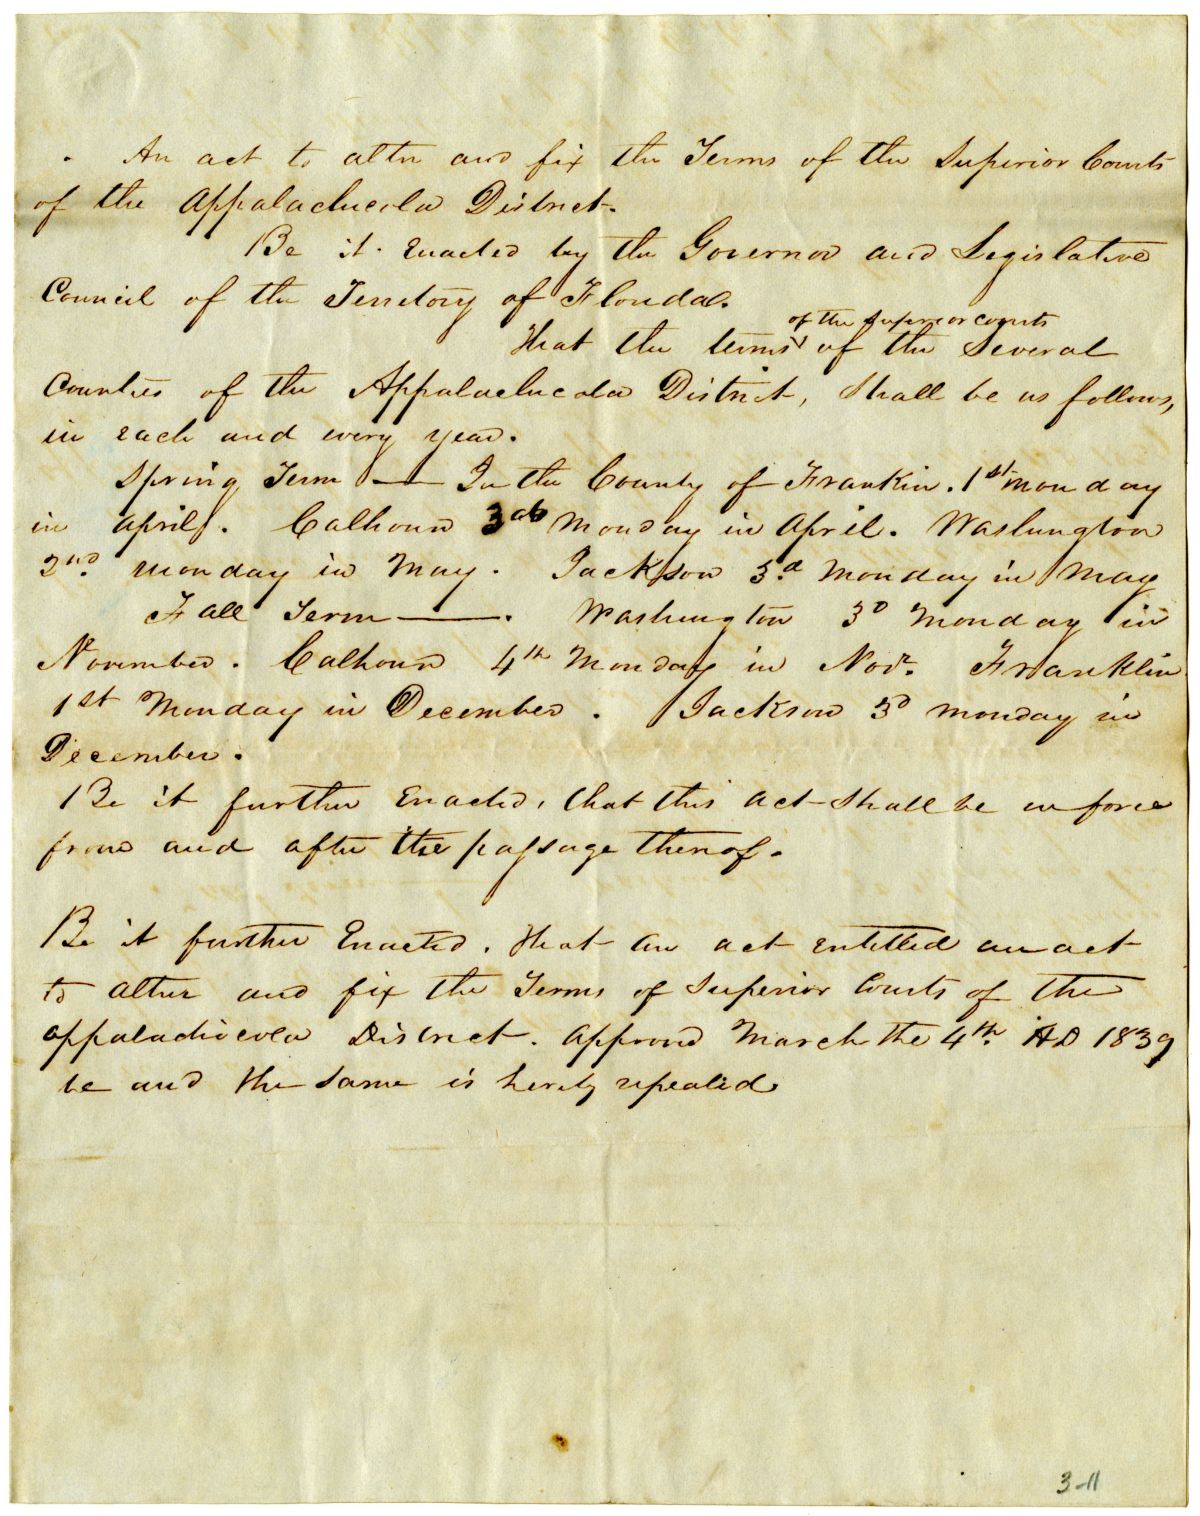 An act to alter and fix the Terms of the Superior Courts
of the Appalachicola District.
Be it Enacted by the Governor and Legislative
Council of the Territory of Florida.
of the Superior courts
That the terms of the Several
Counties of the Appalachicola District, Shall be as follows,
in each and every year.
Spring Term — In the County of Frankin. 1st Monday
in April. Calhoun 3d Monday in April. Washington
2nd. Monday in May. Jackson 3.d Monday in May
Fall Term —. Washington 3d Monday in
November. Calhoun 4th Monday in Novr. Franklin
1st Monday in December. Jackson 3d Monday in
December.
Be it further Enacted, that this act Shall be in force
from and after the passage thereof.
Be it further Enacted. That an act entitled an act
to alter and fix the Terms of Superior Courts of the
appalachicola District. Approved March the 4th. AD 1839
be and the same is hereby repealed.
3-11